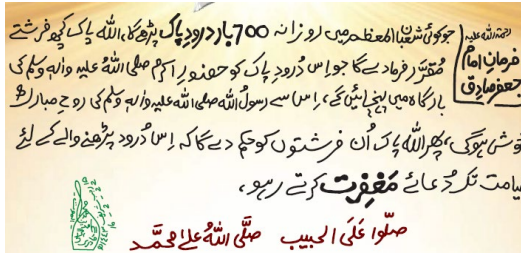 فرمانِ امام
جعفر صادق
رحمۃ اللہ علیہ
جو کوئی شعبان المعظم میں روزانہ 700 بار درودِ پاک پڑھے گا، اللہ پاک کچھ فرشتے
مقرّر فرما دے گا جو اِس دُرودِ پاک کو حضورِ اکرم صلی اللہ علیہ واٰلہ وسلم کی
بارگاہ میں پہنچائیں گے، اِس سے رسولُ اللہ صلی اللہ علیہ واٰلہ وسلم کی روحِ مبارک
خوش ہوگی، پھر اللہ پاک اُن فرشتوں کو حکم دے گا کہ اِس دُرود پڑھنے والے کے لئے
قیامت تک دُعائے مَغفِرت کرتے رہو،
صلّوا عَلَی الحبیب صلَّی اللہُ علیٰ محمَّد